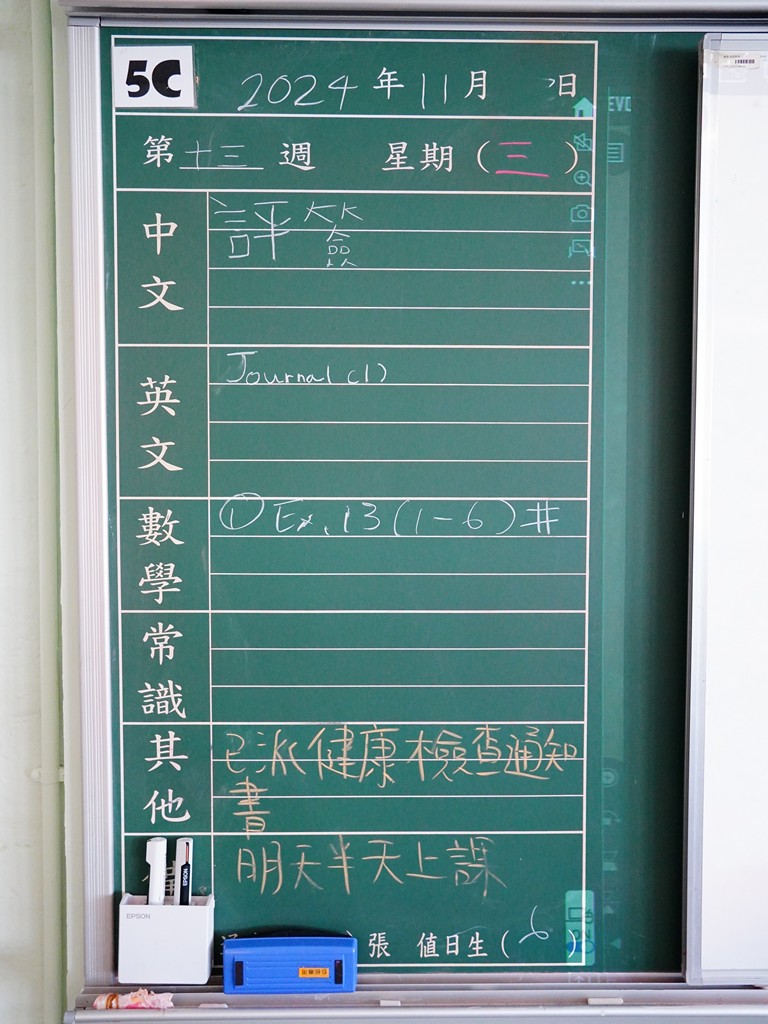 5C
2024 年 11 月 日
第 十三 週 星期 ( 三 )
EVO
中文
評
英文
Journal (1)
數學
① Ex. 13 (1-6) #
常識
其他
已派健康檢查通知
書
明天半天上課
EPSON
EPSON
張 值日生 ( 6 )